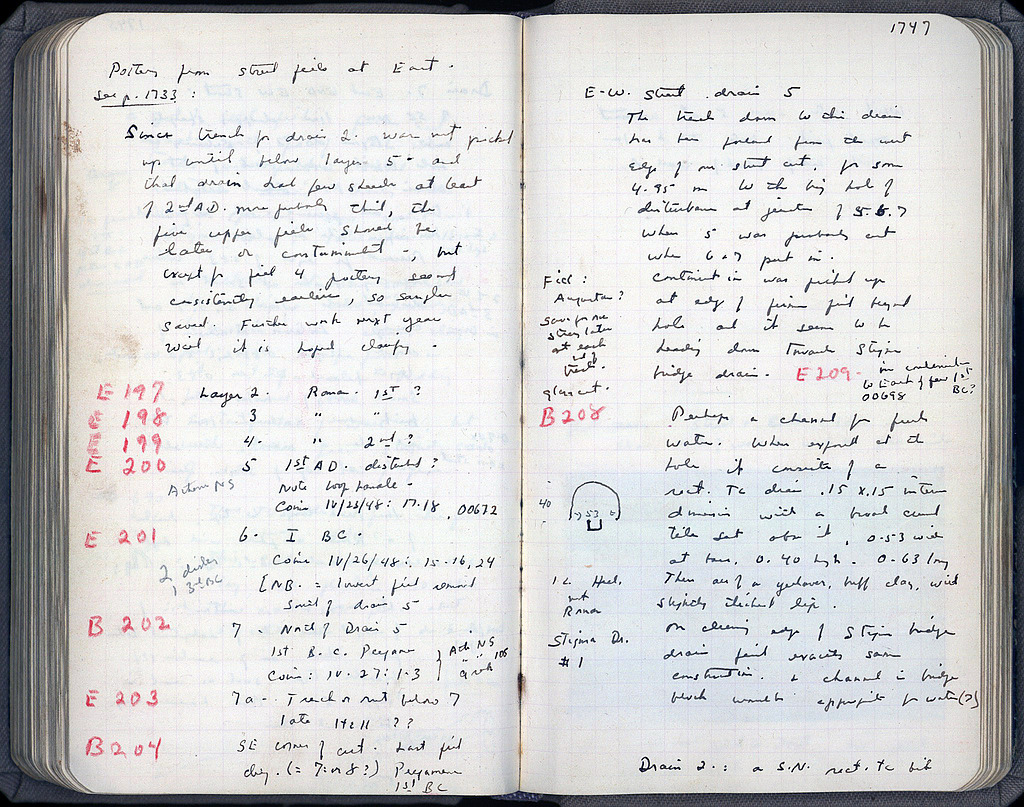 Pottery from street fill at East.
See p. 1733:
Since trench for drain 2. was not picked
up until below layer 5 - and
that drain had few sherds at least
of 2nd AD. more probably third, the
five upper fills should be
later or contaminated, but
except for fill 4 pottery seemed
consistently earlier, so samples
saved. Further work next year
will it is hoped clarify.
E 197 Layer 2. Roman. 1st ?
E 198 3 " "
E 199 4. " 2nd ?
E 200 5 1st AD. disturbed?
Note loop handle -
Coins IV/23/48: 17-18
00672
E 201 6. I BC.
Coins IV/26/48: 15-16, 24
2 dishes
1 3rd BC
[NB. = lowest fill
South of drain 5
B 202 7 - North of Drain 5
1st B.C. Pergamene
Coins: IV-27: 1-3
E 203 7a - Trench or not below 7
late Hell ??
B 204 SE corner of cut. Last fill
dug. (= 7 or 8?) Pergamene
1st BC
1747
E-W. Street drain 5
The trench down to this drain
has been found from the east
edge of our street cut, for some
4.95 m to the big hole of
disturbance at junction of 5.6.7
when 5 was probably cut
when 6 + 7 put in.
Fill:
Augustan?
continuation was picked up
at edge of fill beyond
hole and it seems to be
heading down towards Stygian
bridge drain. E209 -
00698
BC?
at each
end of
trench.
glass cut.
B 208 Perhaps a channel for fresh
water. When exposed at the
hole it consists of a
rect. TC drain .15 x .15 interior
dimension with a broad curved
tile set over it, 0.53 wide
at base, 0.40 high. 0.63 long
40
53
These are of a yellow, buff clay, with
slightly thickened lip.
not
Roman
Stygian Dr.
#1
On cleaning edge of Stygian bridge
drain find exactly same
construction. A channel in bridge
block would be appropriate for water(?)
Drain 2.: a S.N. rect. TC